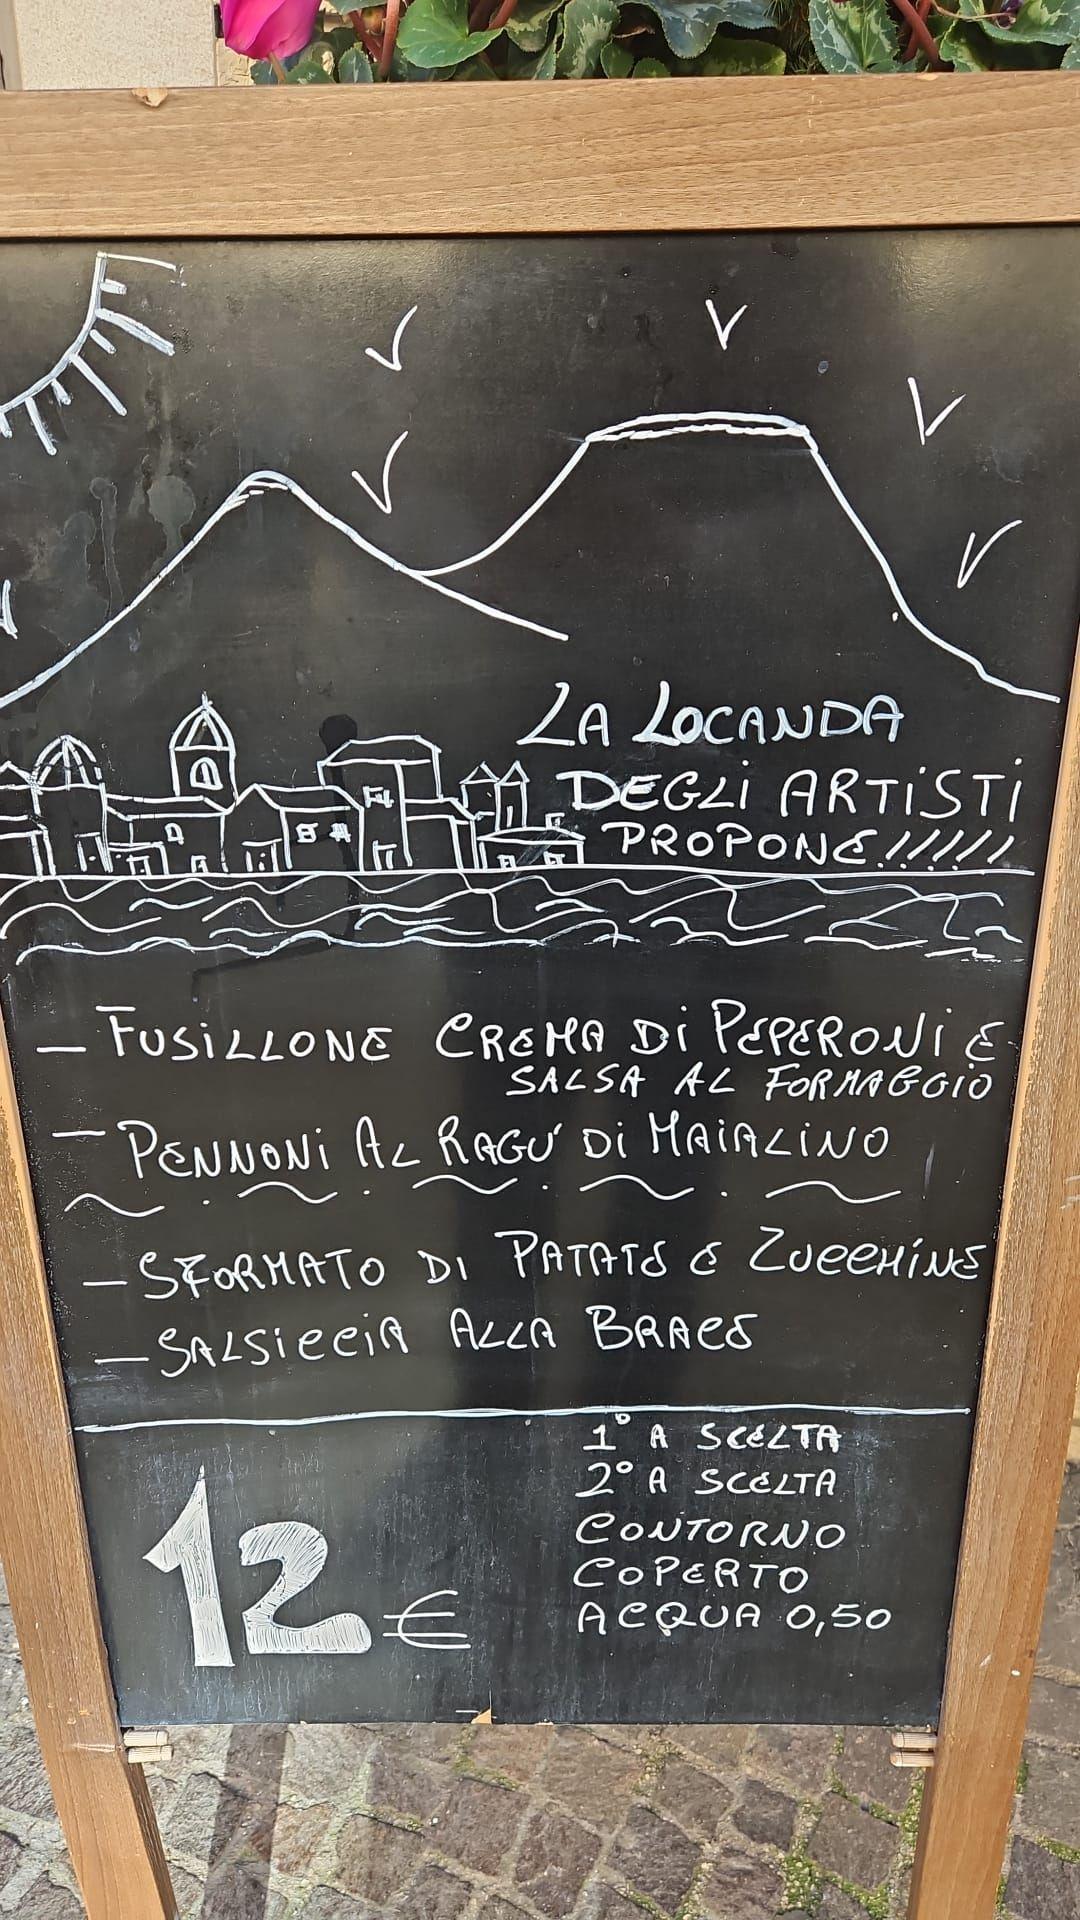 LA LOCANDA
DEGLI ARTISTI
PROPONE!!!!!!
– FUSILLONE CREMA DI PEPERONI E
SALSA AL FORMAGGIO
– PENNONI AL RAGU' DI MAIALINO
– SFORMATO DI PATATE E ZUCCHINE
– SALSICCIA ALLA BRACE
12€
1° A SCELTA
2° A SCELTA
CONTORNO
COPERTO
ACQUA 0,50